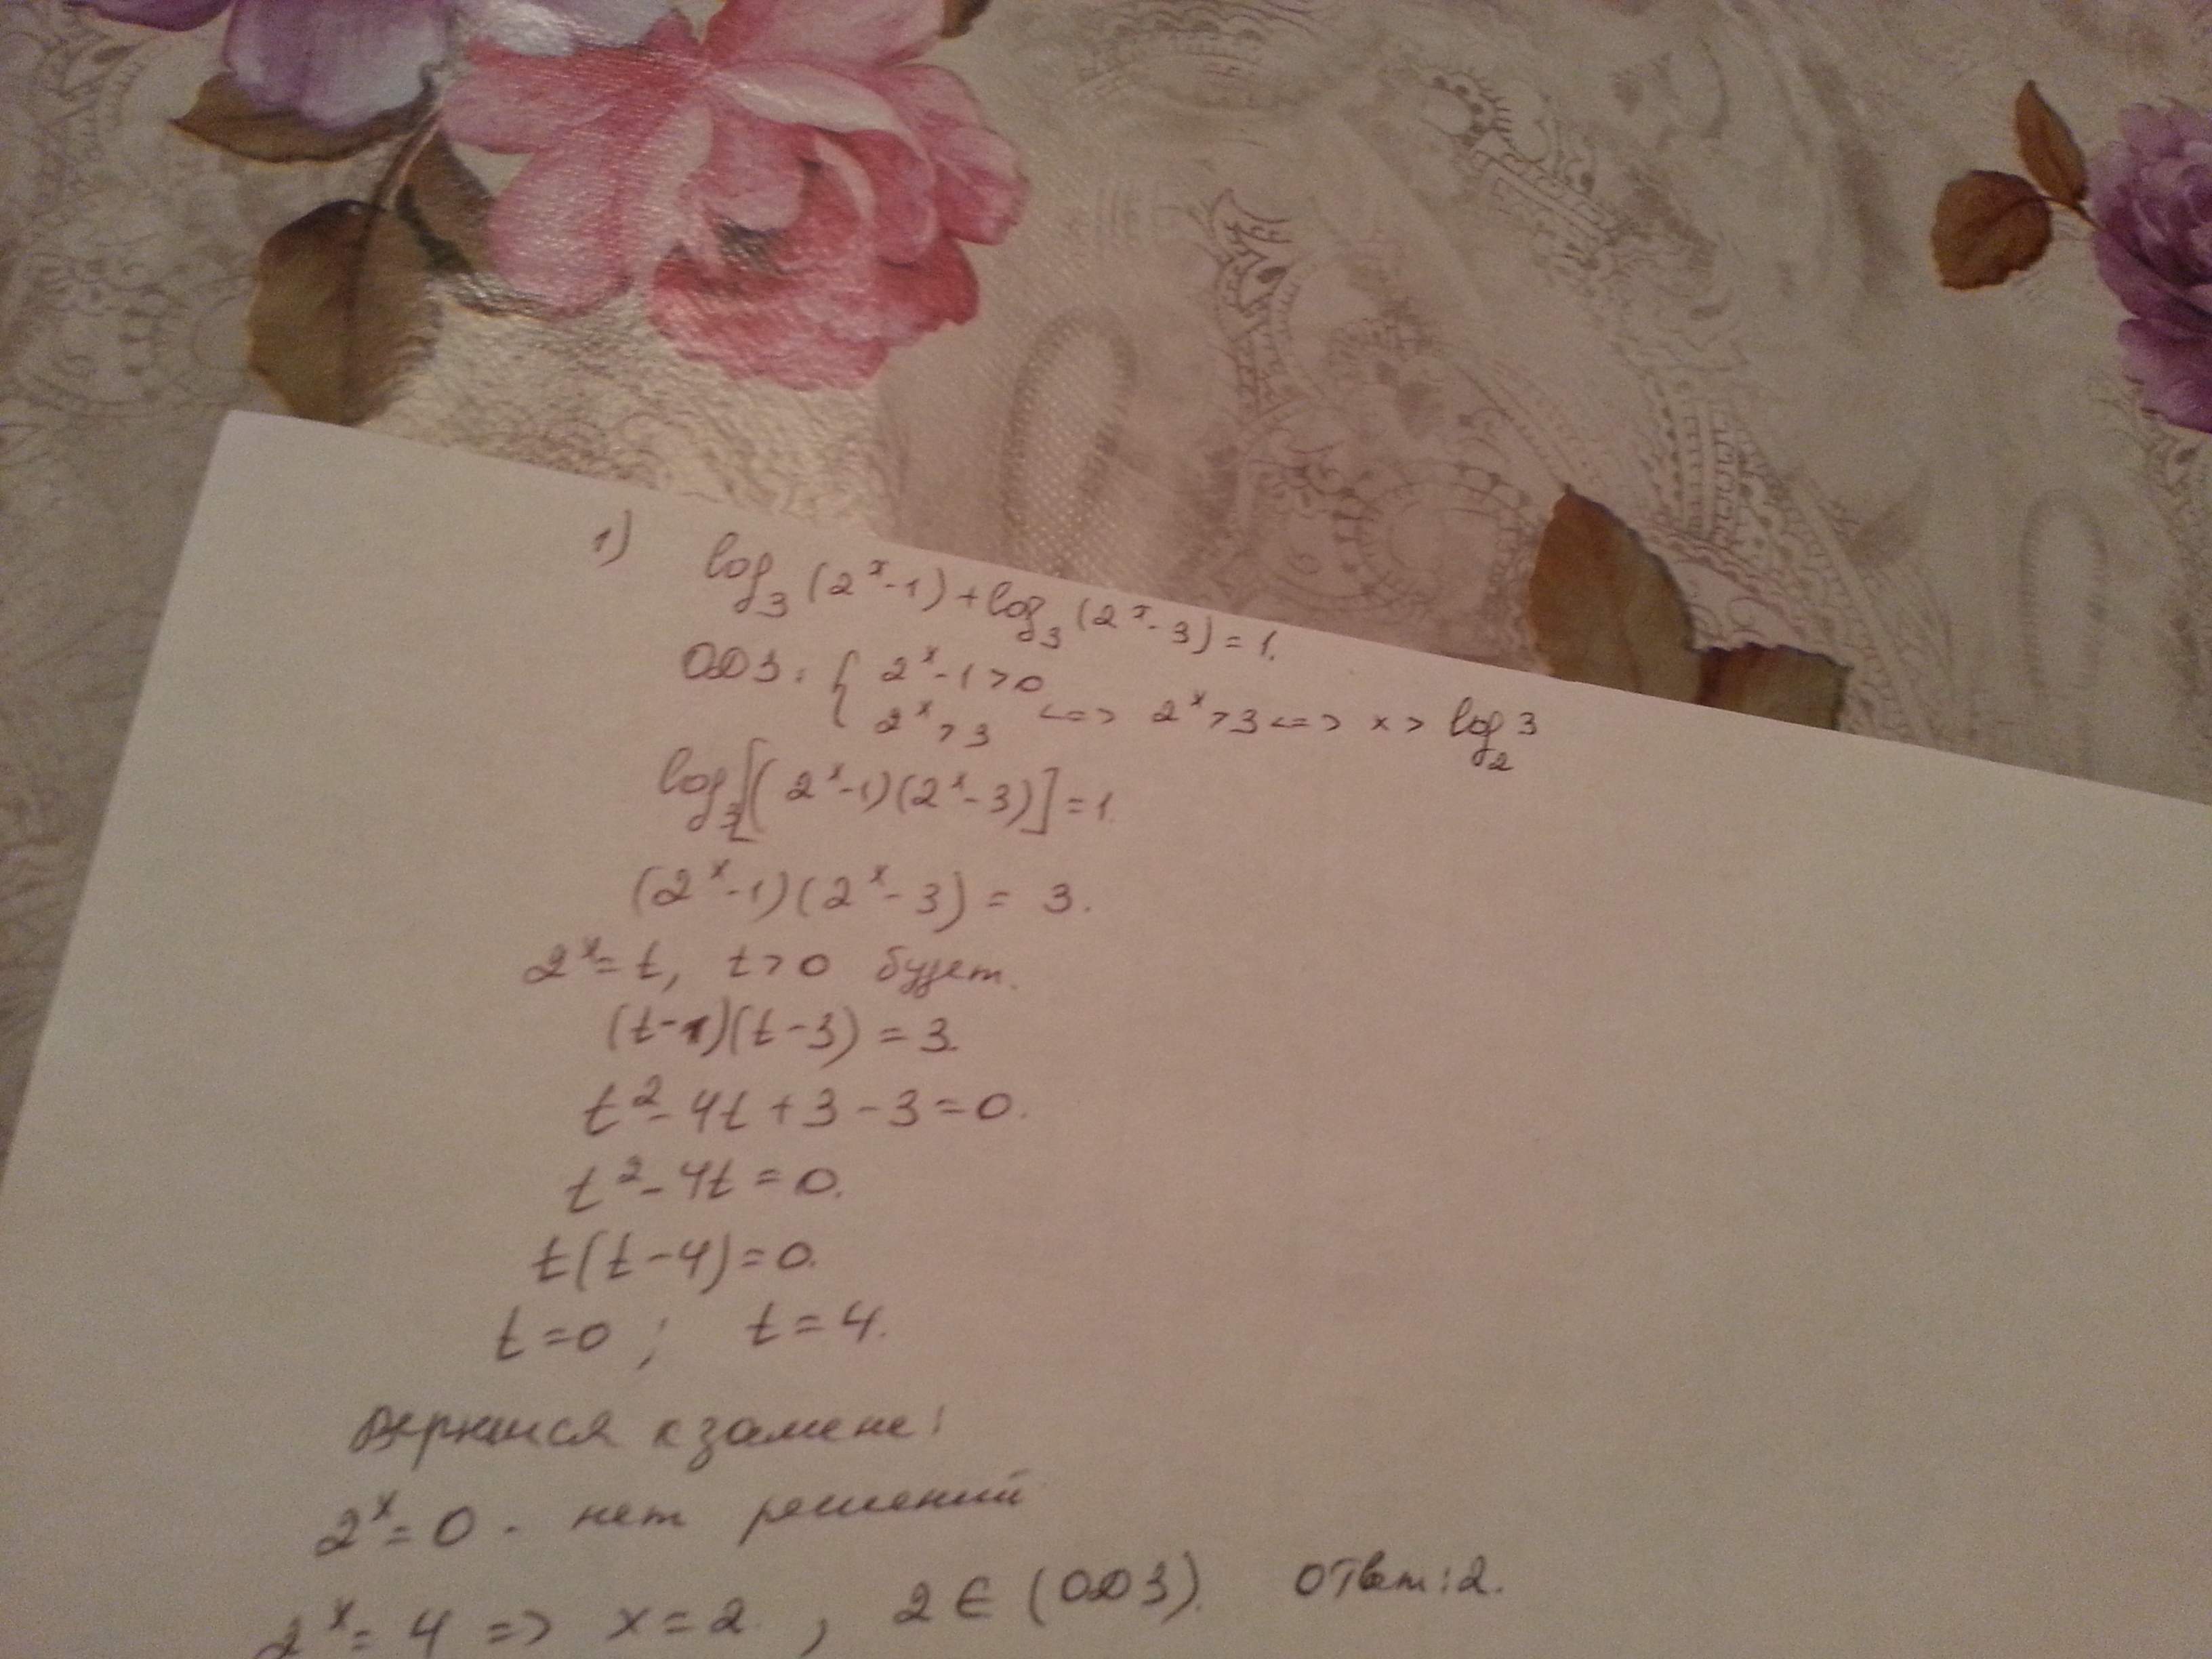 1) log₃(2ˣ-1)+log₃(2ˣ-3)=1.
ОДЗ: { 2ˣ-1>0
2ˣ>3 <=> 2ˣ>3 <=> x > log₂3
log₃[(2ˣ-1)(2ˣ-3)]=1.
(2ˣ-1)(2ˣ-3) = 3.
2ˣ=t, t>0 будет.
(t-1)(t-3)=3.
t²-4t+3-3=0.
t²-4t=0.
t(t-4)=0.
t=0; t=4.
Вернися к замене:
2ˣ=0 - нет решений
2ˣ=4 => x=2. , 2∈(ОДЗ). Ответ:2.